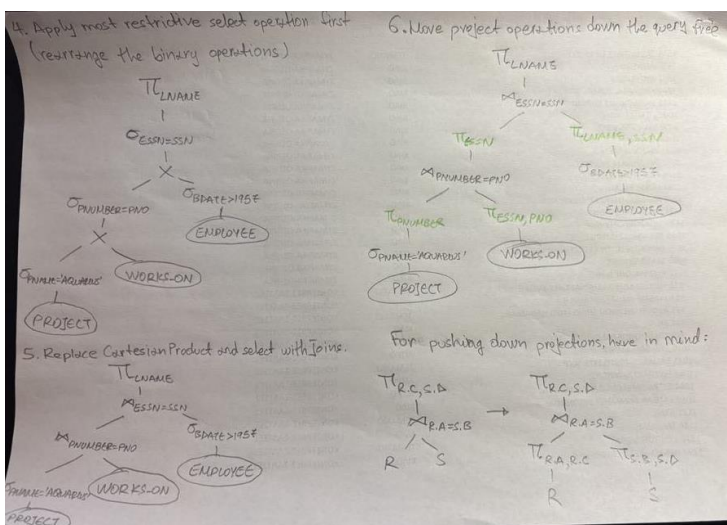 4. Apply most restrictive select operation first
(rearrange the binary operations)
π LNAME
σ ESSN=SSN
×
σ PNUMBER=PNO
σ BDATE>1957
×
EMPLOYEE
σ PNAME='AQUARIUS'
WORKS-ON
PROJECT
5. Replace Cartesian Product and select with Joins.
π LNAME
⋈ ESSN=SSN
⋈ PNUMBER=PNO
σ BDATE>1957
EMPLOYEE
σ PNAME='AQUARIUS'
WORKS-ON
PROJECT
6. Move project operations down the query tree
π LNAME
⋈ ESSN=SSN
π ESSN
π LNAME, SSN
⋈ PNUMBER=PNO
σ BDATE>1957
π PNUMBER
π ESSN, PNO
EMPLOYEE
σ PNAME='AQUARIUS'
WORKS-ON
PROJECT
For pushing down projections, have in mind:
π R.C, S.D → π R.C, S.D
⋈ R.A=S.B
⋈ R.A=S.B
R S
π R.A, R.C π S.B, S.D
R S